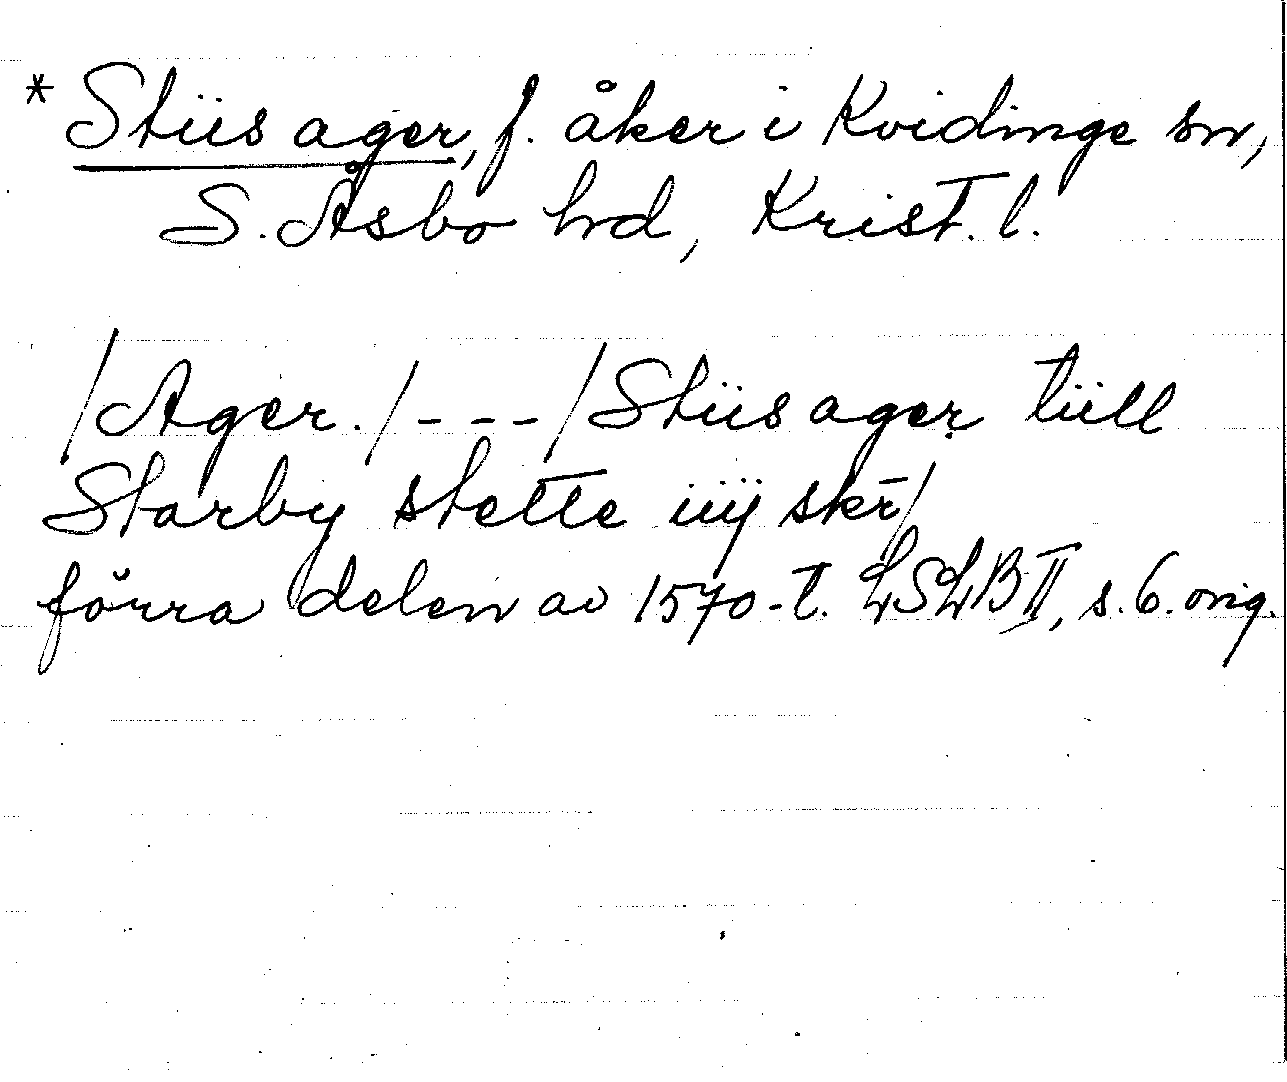 * Stiis ager, f. åker i Kvidinge sn,
S. Åsbo hd, Krist. l.
/Ager./---/Stiis ager tiill
Starby stette iiij skr̄/
förra delen av 1570-t. LSLB II, s. 6. orig.